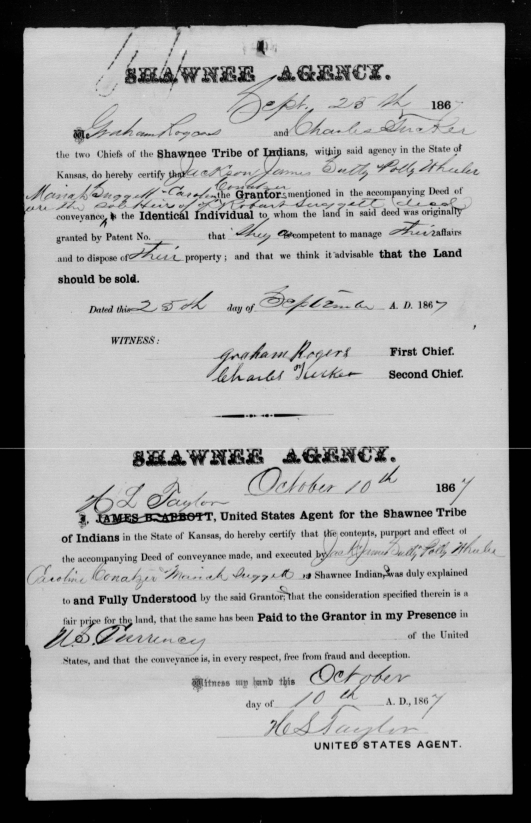 SHAWNEE AGENCY.
Sept. 25th 1867
We Graham Rogers and Charles Tucker
the two Chiefs of the Shawnee Tribe of Indians, within said agency in the State of
Kansas, do hereby certify that Jackson, James Sally Polly Wheeler
Mariah Suggett Caroline Conatzer the Grantor mentioned in the accompanying Deed of
are the Heirs of Robert Suggett deed
conveyance, is the Identical Individual to whom the land in said deed was originally
granted by Patent No. that they competent to manage their affairs
and to dispose of their property; and that we think it advisable that the Land
should be sold.
Dated this 25th day of September A. D. 1867
WITNESS:
Graham Rogers First Chief.
Charles Tucker Second Chief.
SHAWNEE AGENCY.
October 10th 1867
H L Taylor
I, JAMES B. ABBOTT, United States Agent for the Shawnee Tribe
of Indians in the State of Kansas, do hereby certify that the contents, purport and effect of
the accompanying Deed of conveyance made, and executed by James Sally Polly Wheeler
Caroline Conatzer Mariah Suggett Shawnee Indian, was duly explained
to and Fully Understood by the said Grantor, that the consideration specified therein is a
fair price for the land, that the same has been Paid to the Grantor in my Presence in
U.S. Currency of the United
States, and that the conveyance is, in every respect, free from fraud and deception.
Witness my hand this October
day of 10th A. D., 1867
H S Taylor
UNITED STATES AGENT.